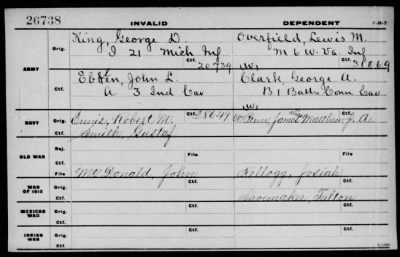 26738
INVALID DEPENDENT
ARMY
Orig. King, George D. Overfield, Lewis M.
I 21 Mich Inf M 6 W. Va. Inf
Ctf. 20739 Ctf. 31869
Orig. John L. Clark, George A.
A 3 Ind Cav B 1 Battn Conn Cav
Ctf. Ctf.
NAVY
Orig. Robert M. 28641
Ctf. Smith, Gustaf
OLD WAR
Rej.
Ctf. File File
WAR OF 1812
Orig. McDonald, John Kellogg, Josiah
Ctf. Ctf. Shoemaker,
MEXICAN WAR
Orig.
Ctf. Ctf.
INDIAN WAR
Orig.
Ctf. Ctf.